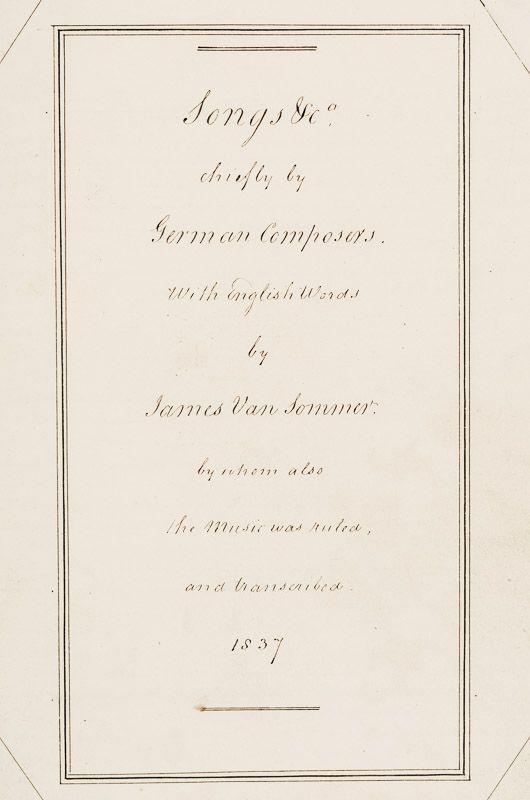 Songs &cᵃ.
chiefly by
German Composers.
With English Words
by
James Van Sommer.
by whom also
the Music was ruled,
and transcribed.
1837